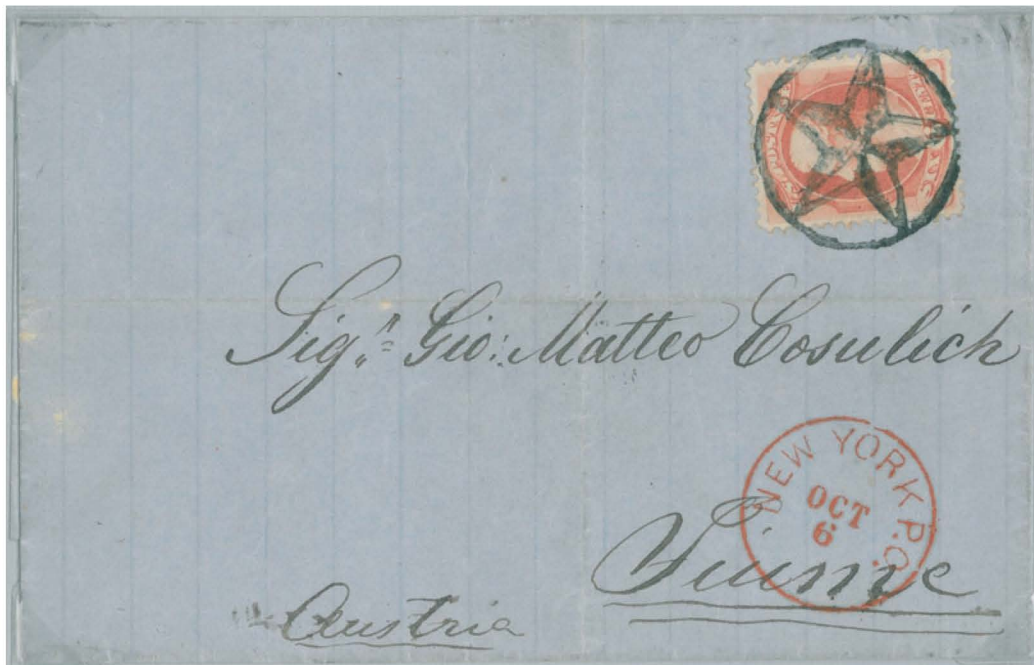 Sigr. Gio: Matteo Cosulich
NEW YORK P.O.
OCT
6
Fiume
Austria